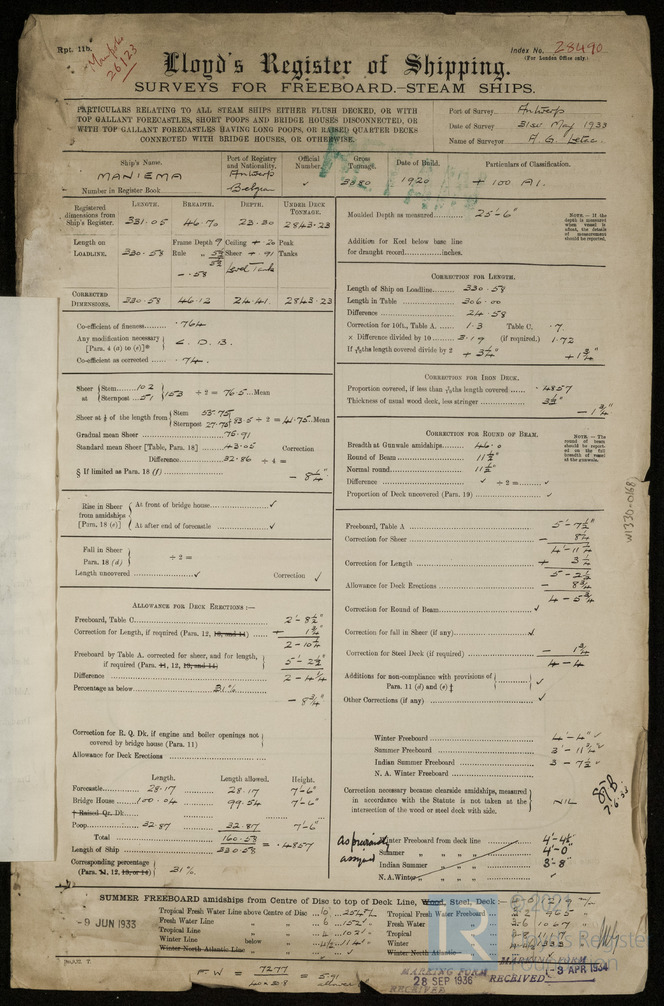 Rpt. 11b.
26123
Index No. 28490
(For London Office only.)
Lloyd's Register of Shipping.
SURVEYS FOR FREEBOARD.—STEAM SHIPS.
PARTICULARS RELATING TO ALL STEAM SHIPS EITHER FLUSH DECKED, OR WITH
TOP GALLANT FORECASTLES, SHORT POOPS AND BRIDGE HOUSES DISCONNECTED, OR
WITH TOP GALLANT FORECASTLES HAVING LONG POOPS, OR RAISED QUARTER DECKS
CONNECTED WITH BRIDGE HOUSES, OR OTHERWISE.
Port of Survey Antwerp
Date of Survey 31st May 1933
Name of Surveyor A. G.
Ship's Name. Port of Registry and Nationality. Official Number. Gross Tonnage. Date of Build. Particulars of Classification.
MANIEMA Antwerp Belgian ✓ 1920 + 100 A1.
Number in Register Book
Registered dimensions from Ship's Register. LENGTH. 331.05 BREADTH. 46.70 DEPTH. 23.30 UNDER DECK TONNAGE. 2843.23
Length on LOADLINE. 330.58 Frame Depth 9 Rule - .58 Ceiling + .20 Sheer + .91 Level Tanks Peak Tanks
CORRECTED DIMENSIONS. 330.58 46.12 24.41 2843.23
Co-efficient of fineness .764
Any modification necessary [Para. 4 (a) to (e)]* C. D. B.
Co-efficient as corrected .74
Sheer at { Stem 102 Sternpost 51 } 153 ÷ 2 = 76.5 Mean
Sheer at 1/8 of the length from { Stem 53.75 Sternpost 27.75 } 83.5 ÷ 2 = 41.75 Mean
Gradual mean Sheer 75.91
Standard mean Sheer [Table, Para. 18] 43.05 Correction
Difference 32.86 ÷ 4 =
§ If limited as Para. 18 (f) - 8 1/4"
Rise in Sheer from amidships [Para. 18 (e)] { At front of bridge house ✓
At after end of forecastle ✓
Fall in Sheer Para. 18 (d) } ÷ 2 =
Length uncovered ✓ Correction ✓
ALLOWANCE FOR DECK ERECTIONS :—
Freeboard, Table C 2'-8 1/2"
Correction for Length, if required (Para. 12, 13, and 14) + 1 3/4"
2-10 1/4
Freeboard by Table A. corrected for sheer, and for length, if required (Para. 11, 12, 13, and 14) 5'-2 1/2"
Difference 2-4 1/4
Percentage as below 31%
- 8 3/4"
Correction for R. Q. Dk. if engine and boiler openings not covered by bridge house (Para. 11)
Allowance for Deck Erections
Length. Length allowed. Height.
Forecastle 28.17 28.17 7'-6"
Bridge House 100.04 99.54 7'-6"
† Raised Qr. Dk
Poop 32.87 32.87 7'-6"
Total 160.58
Length of Ship 330.58 = .4857
Corresponding percentage (Para. 11, 12, 13, or 14) 31%
Moulded Depth as measured 25'-6"
NOTE.—If the depth is measured when vessel is afloat, the details of measurement should be reported.
Addition for Keel below base line for draught record inches.
CORRECTION FOR LENGTH.
Length of Ship on Loadline 330.58
Length in Table 306.00
Difference 24.58
Correction for 10ft., Table A. 1.3 Table C. .7
× Difference divided by 10 3.19 (if required.) 1.72
If 6/10ths length covered divide by 2 + 3 1/4" + 1 3/4"
CORRECTION FOR IRON DECK.
Proportion covered, if less than 7/10ths length covered .4857
Thickness of usual wood deck, less stringer 3 1/2"
- 1 3/4"
CORRECTION FOR ROUND OF BEAM.
Breadth at Gunwale amidships 46.0
Round of Beam 11 1/2"
Normal round 11 1/2"
Difference ✓ ÷ 2 = ✓
Proportion of Deck uncovered (Para. 19) ✓
NOTE.—The round of beam should be reported on the full breadth of vessel at the gunwale.
Freeboard, Table A 5'-7 1/2"
Correction for Sheer - 8 1/4
4'-11 1/4
Correction for Length + 3 1/4
5-2 1/2
Allowance for Deck Erections - 8 3/4
4-5 3/4
Correction for Round of Beam ✓
Correction for fall in Sheer (if any) ✓
Correction for Steel Deck (if required) - 1 3/4
4-4
Additions for non-compliance with provisions of Para. 11 (d) and (e) ‡ ✓
Other Corrections (if any) ✓
Winter Freeboard 4'-4" ✓
Summer Freeboard 3'-11 3/4" ✓
Indian Summer Freeboard 3-7 1/2" ✓
N. A. Winter Freeboard
Correction necessary because clearside amidships, measured in accordance with the Statute is not taken at the intersection of the wood or steel deck with side. } NIL
7.6.33
As previously assigned
Winter Freeboard from deck line 4'-4 1/4"
Summer " " " 4'-0"
Indian Summer " " " 3'-8"
N.A. Winter " " "
SUMMER FREEBOARD amidships from Centre of Disc to top of Deck Line, Wood, Steel, Deck :—
-9 JUN 1933
Tropical Fresh Water Line above Centre of Disc 10
Fresh Water Line " " 6
Tropical Line " " 4
Winter Line below " 4
Winter North Atlantic Line " "
Tropical Fresh Water Freeboard
Fresh Water "
Tropical "
Winter "
Winter North Atlantic "
F.W =
MARKING FORM
28 SEP 1936
RECEIVED
MARKING FORM
RECEIVED -3 APR 1934
W1330-0168
LR
Foundation